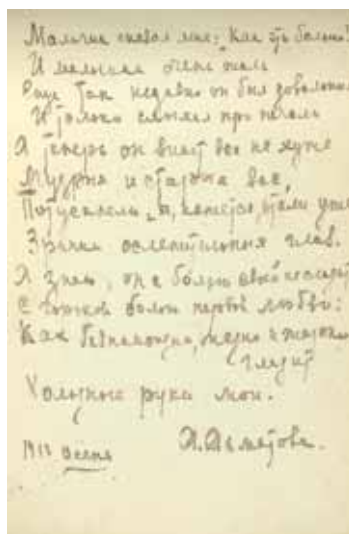 Мальчик сказал мне: Как это больно!
И мальчика очень жаль
Еще так недавно он был довольным
И только слыхал про печаль
А теперь он знает все не хуже
Мудрых и старых вас,
Потускнели и, кажется, стали уже
Зрачки ослепительных глаз.
Я знаю, он с болью своей не сладит
С горькой болью первой любви:
Как беспомощно, жадно и жарко
гладит
Холодные руки мои.
А. Ахматова.
осень